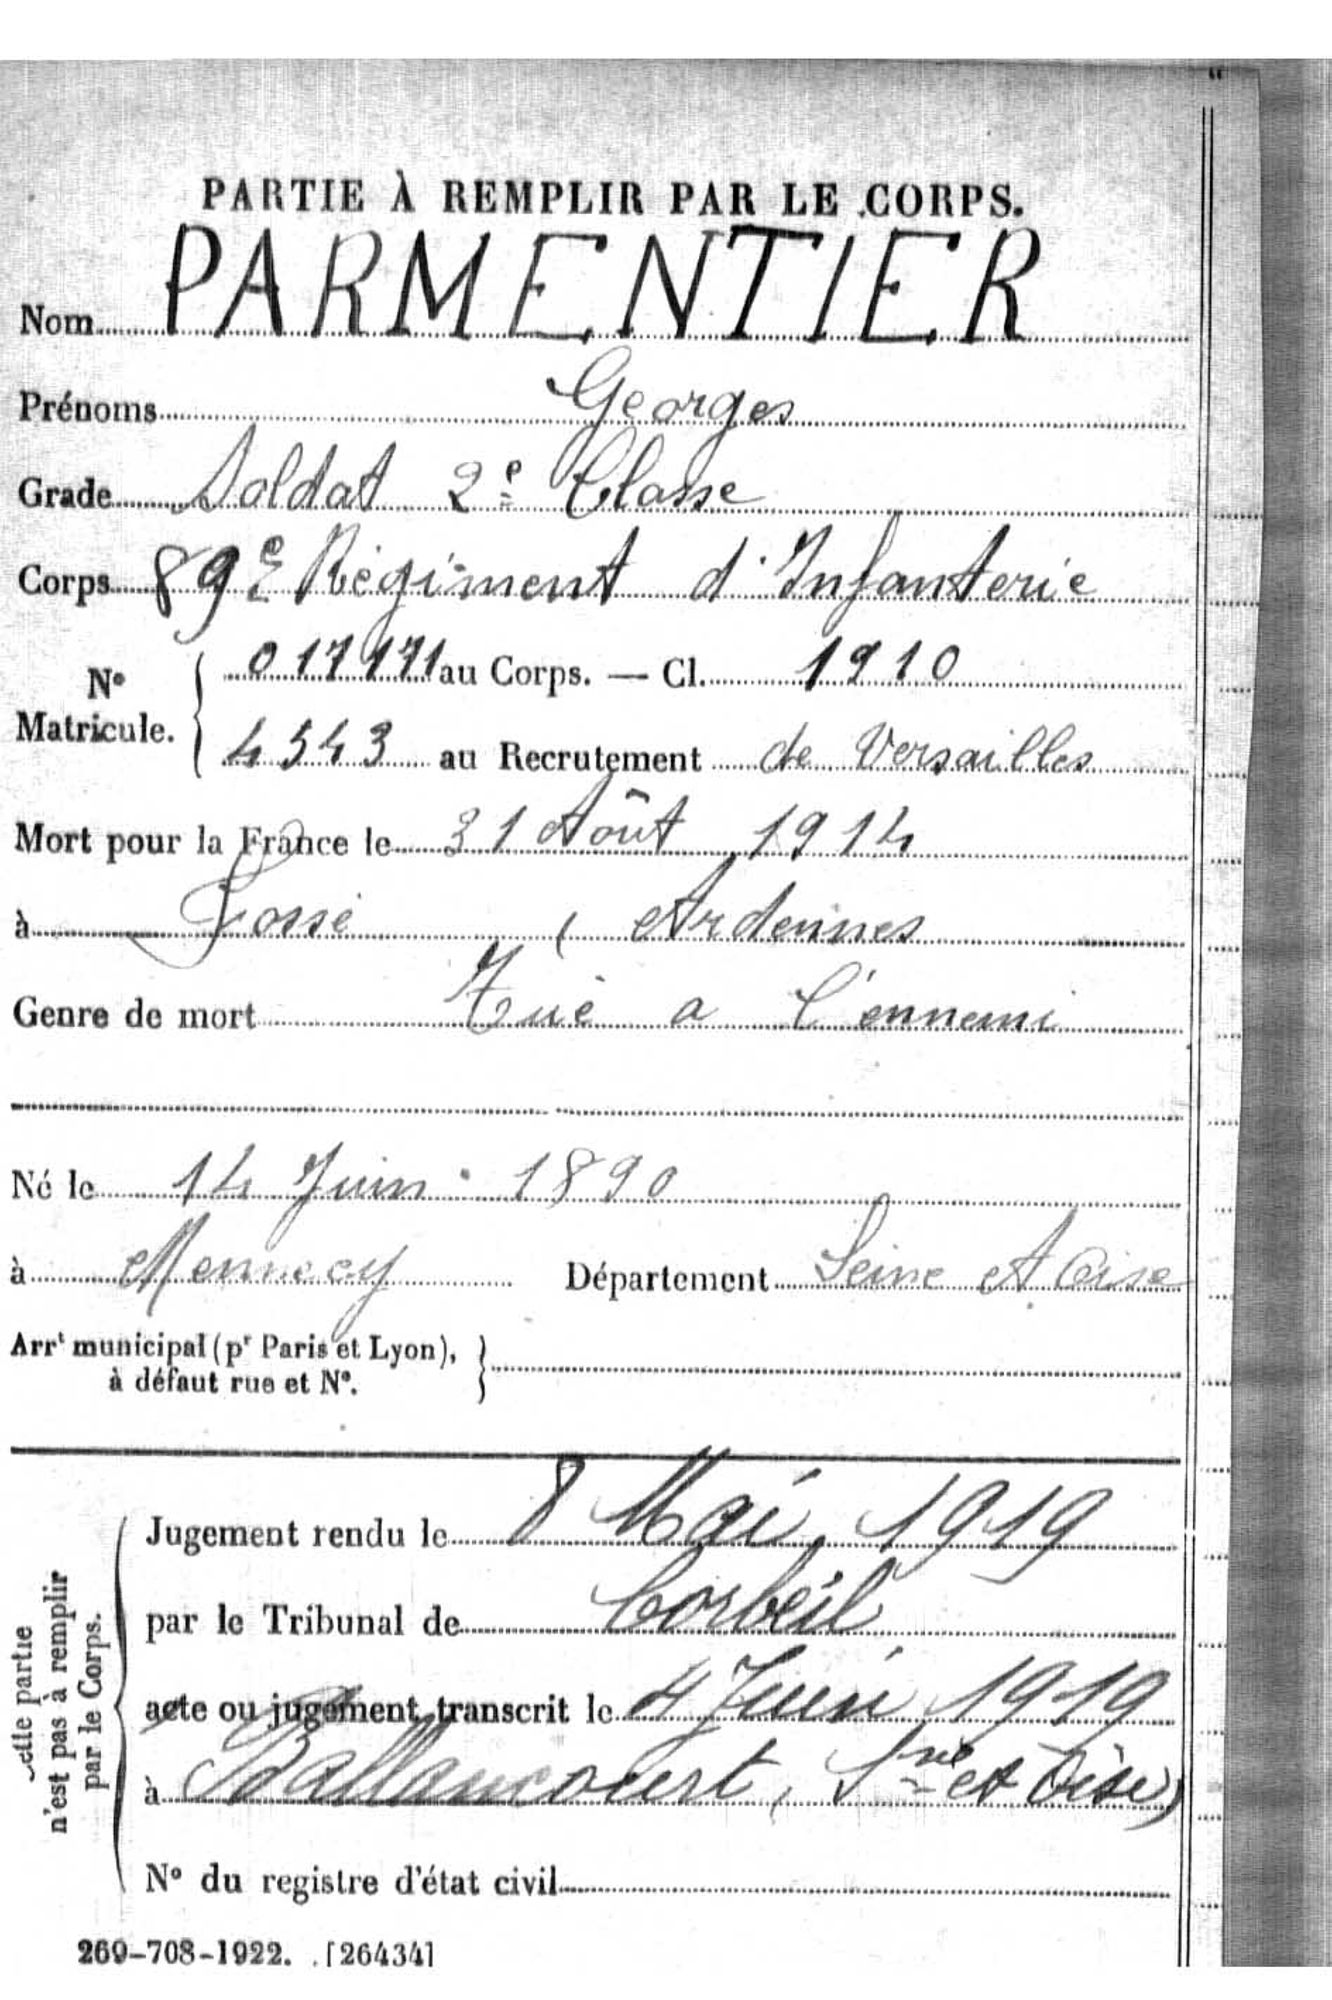 PARTIE À REMPLIR PAR LE CORPS.
Nom PARMENTIER
Prénoms Georges
Grade Soldat 2e Classe
Corps 89e Régiment d'Infanterie
No Matricule. { 017171 au Corps. — Cl. 1910
4543 au Recrutement de Versailles
Mort pour la France le 31 Août 1914
à Fossé ( Ardennes
Genre de mort Tué a l'ennemi
Né le 14 Juin 1890
à Mennecy Département Seine et Oise
Arrt municipal (pr Paris et Lyon), }
à défaut rue et No.
Cette partie
n'est pas à remplir
par le Corps.
Jugement rendu le 8 Mai 1919
par le Tribunal de Corbeil
acte ou jugement transcrit le 4 Juin 1919
à Ballancourt, (Sne et Oise)
No du registre d'état civil
269-708-1922. [26434]